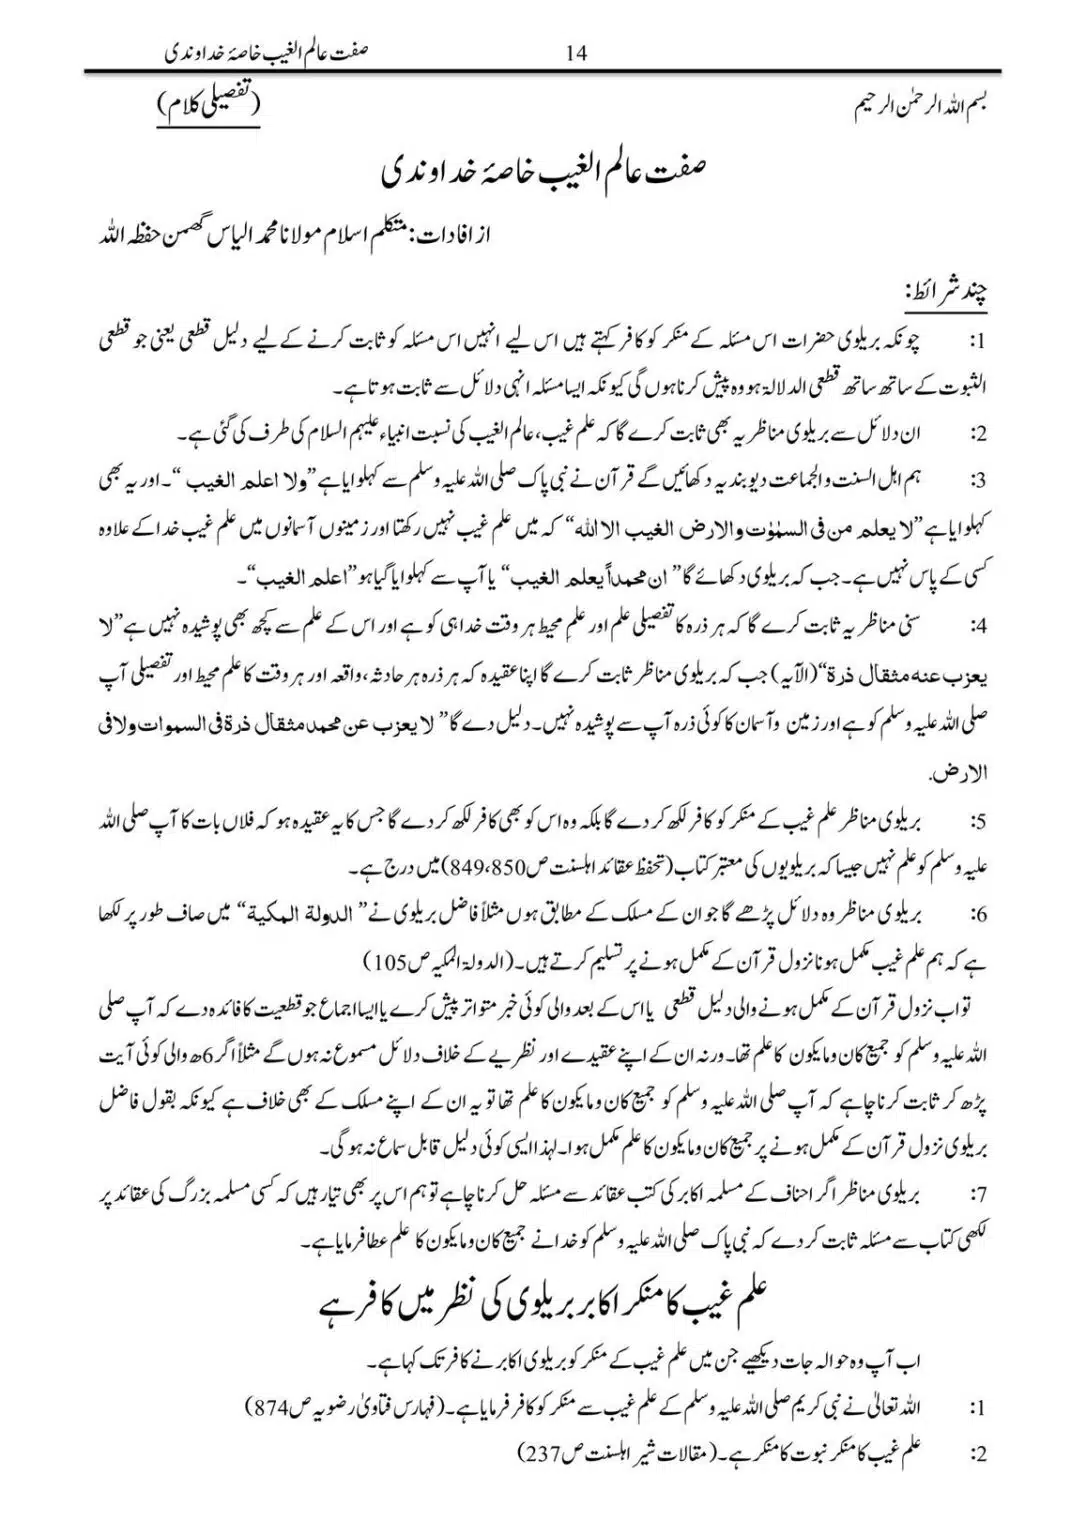 صفت عالم الغیب خاصۂ خداوندی 14
بسم اللہ الرحمٰن الرحیم (تفصیلی کلام)
صفت عالم الغیب خاصۂ خداوندی
از افادات: متکلم اسلام مولانا محمد الیاس گھمن حفظہ اللہ
چند شرائط:
1: چونکہ بریلوی حضرات اس مسئلہ کے منکر کو کافر کہتے ہیں اس لیے انہیں اس مسئلہ کو ثابت کرنے کے لیے دلیل قطعی یعنی جو قطعی
الثبوت کے ساتھ ساتھ قطعی الدلالۃ ہو وہ پیش کرنا ہوں گی کیونکہ ایسا مسئلہ انہی دلائل سے ثابت ہوتا ہے۔
2: ان دلائل سے بریلوی مناظر یہ بھی ثابت کرے گا کہ علم غیب، عالم الغیب کی نسبت انبیاء علیہم السلام کی طرف کی گئی ہے۔
3: ہم اہل السنت والجماعت دیوبند یہ دکھائیں گے قرآن نے نبی پاک صلی اللہ علیہ وسلم سے کہلوایا ہے ”ولا اعلم الغیب “۔ اور یہ بھی
کہلوایا ہے ”لا یعلم من فی السمٰوٰت والارض الغیب الا اللہ“ کہ میں علم غیب نہیں رکھتا اور زمینوں آسمانوں میں علم غیب خدا کے علاوہ
کسی کے پاس نہیں ہے۔ جب کہ بریلوی دکھائے گا ” ان محمداً یعلم الغیب“ یا آپ سے کہلوایا گیا ہو ”اعلم الغیب“۔
4: سنی مناظر یہ ثابت کرے گا کہ ہر ذرہ کا تفصیلی علم اور علمِ محیط ہر وقت خدا ہی کو ہے اور اس کے علم سے کچھ بھی پوشیدہ نہیں ہے ”لا
یعزب عنہ مثقال ذرۃ“(الآیہ) جب کہ بریلوی مناظر ثابت کرے گا اپنا عقیدہ کہ ہر ذرہ ہر حادثہ، واقعہ اور ہر وقت کا علم محیط اور تفصیلی آپ
صلی اللہ علیہ وسلم کو ہے اور زمین وآسمان کا کوئی ذرہ آپ سے پوشیدہ نہیں۔ دلیل دے گا ” لا یعزب عن محمد مثقال ذرۃ فی السموات ولا فی
الارض.
5: بریلوی مناظر علم غیب کے منکر کو کافر لکھ کر دے گا بلکہ وہ اس کو بھی کافر لکھ کر دے گا جس کا یہ عقیدہ ہو کہ فلاں بات کا آپ صلی اللہ
علیہ وسلم کو علم نہیں جیسا کہ بریلویوں کی معتبر کتاب (تحفظ عقائد اہلسنت ص849،850) میں درج ہے۔
6: بریلوی مناظر وہ دلائل پڑھے گا جو ان کے مسلک کے مطابق ہوں مثلاً فاضل بریلوی نے ” الدولۃ المکیۃ “ میں صاف طور پر لکھا
ہے کہ ہم علم غیب مکمل ہونا نزول قرآن کے مکمل ہونے پر تسلیم کرتے ہیں۔ (الدولۃ المکیہ ص105)
تو اب نزول قرآن کے مکمل ہونے والی دلیل قطعی یا اس کے بعد والی کوئی خبر متواتر پیش کرے یا ایسا اجماع جو قطعیت کا فائدہ دے کہ آپ صلی
اللہ علیہ وسلم کو جمیع کان وما یکون کا علم تھا۔ ورنہ ان کے اپنے عقیدے اور نظریے کے خلاف دلائل مسموع نہ ہوں گے مثلاً اگر 6ھ والی کوئی آیت
پڑھ کر ثابت کرنا چاہے کہ آپ صلی اللہ علیہ وسلم کو جمیع کان وما یکون کا علم تھا تو یہ ان کے اپنے مسلک کے بھی خلاف ہے کیونکہ بقول فاضل
بریلوی نزول قرآن کے مکمل ہونے پر جمیع کان وما یکون کا علم مکمل ہوا۔ لہذا ایسی کوئی دلیل قابل سماع نہ ہو گی۔
7: بریلوی مناظر اگر احناف کے مسلمہ اکابر کی کتب عقائد سے مسئلہ حل کرنا چاہے تو ہم اس پر بھی تیار ہیں کہ کسی مسلمہ بزرگ کی عقائد پر
لکھی کتاب سے مسئلہ ثابت کر دے کہ نبی پاک صلی اللہ علیہ وسلم کو خدا نے جمیع کان وما یکون کا علم عطا فرمایا ہے۔
علم غیب کا منکر اکابر بریلوی کی نظر میں کافر ہے
اب آپ وہ حوالہ جات دیکھیے جن میں علم غیب کے منکر کو بریلوی اکابر نے کافر تک کہا ہے۔
1: اللہ تعالیٰ نے نبی کریم صلی اللہ علیہ وسلم کے علم غیب سے منکر کو کافر فرمایا ہے۔ (فہارس فتاویٰ رضویہ ص874)
2: علم غیب کا منکر نبوت کا منکر ہے۔ (مقالات شیر اہلسنت ص237)